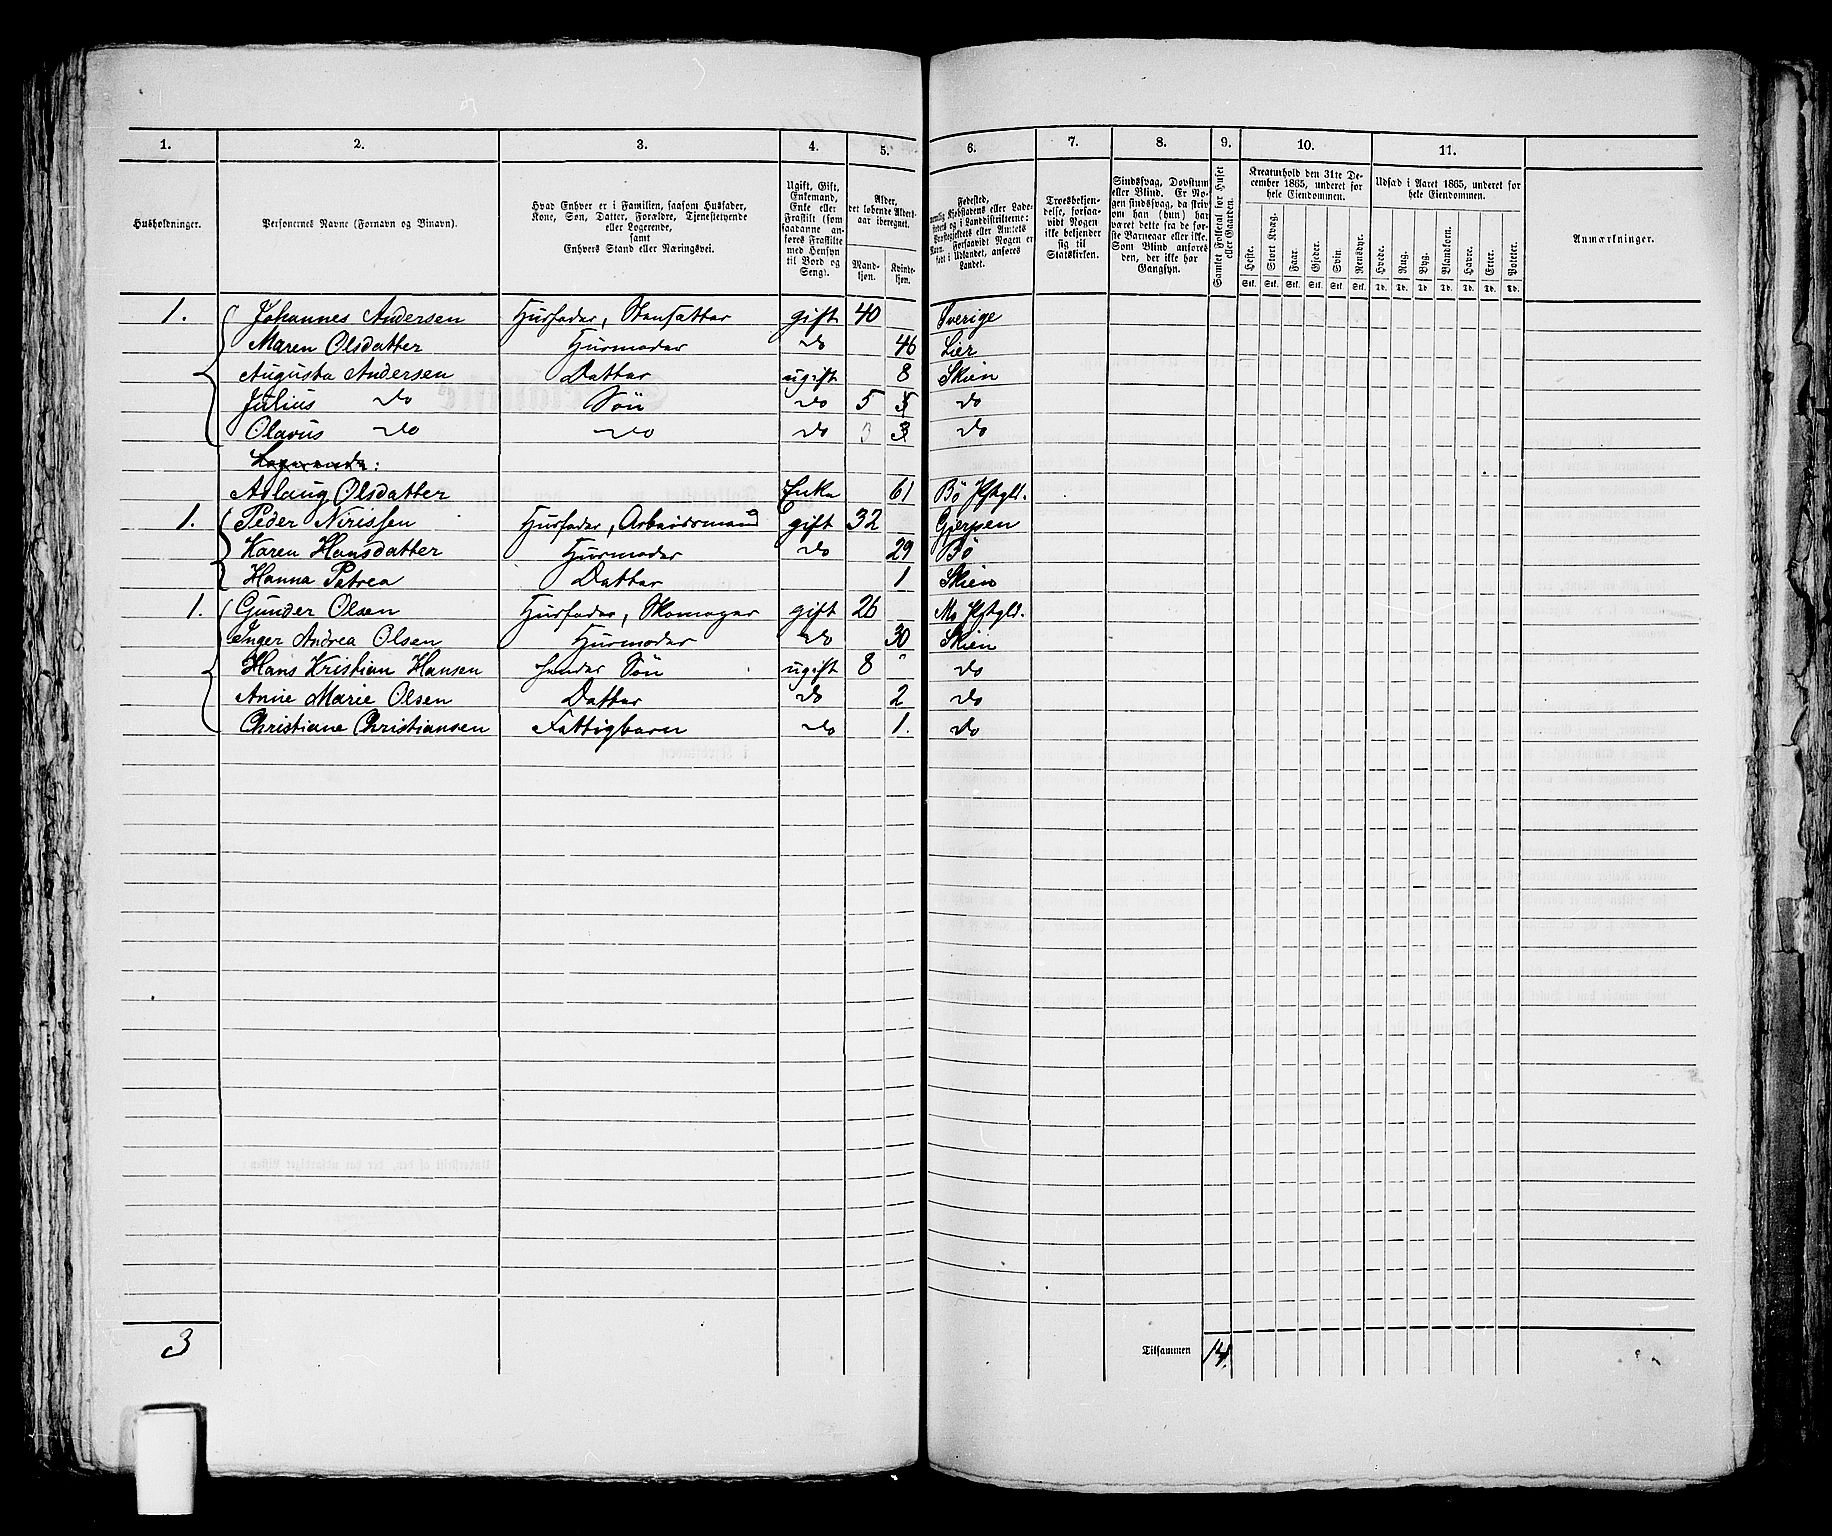 1. 2. 3. 4. 5. 6. 7. 8. 9. 10. 11.
Husholdninger.
Personernes Navne (Fornavn og Binavn).
Hvad Enhver er i Familien, saasom Husfader,
Kone, Søn, Datter, Forældre, Tjenestetyende
eller Logerende,
samt
Enhvers Stand eller Næringsvei.
Ugift, Gift,
Enkemand,
Enke eller
Fraskilt (som
saadanne an-
føres Fraskilte
med Hensyn
til Bord og
Seng).
Alder,
det løbende Alders-
aar iberegnet.
Mand-
kjøn.
Kvinde-
kjøn.
Fødested,
Forsaavidt Nogen er
født i Udlandet, anføres
Landet.
Troesbekjen-
delse, forsaa-
vidt Nogen
ikke bekjender
sig til
Statskirken.
Sindssvag, Døvstum
eller Blind. Er No-
gen sindssvag, da skriv
om han (hun) har
været dette fra de før-
ste Barneaar eller ikke.
Som Blind anføres
den, der ikke har
Gangsyn.
Samlet Folketal for Huset
eller Gaarden.
Kreaturhold den 31te De-
cember 1865, underet for
hele Eiendommen.
Heste. Stort Kvæg. Faar. Gjeder. Svin Rensdyr.
Stk. Stk. Stk. Stk. Stk. Stk.
Udsæd i Aaret 1865, underet for
hele Eiendommen.
Hvede. Rug. Byg. Blandkorn. Havre. Erter. Poteter.
Td. Td. Td. Td. Td. Td. Td.
Anmærkninger.
1. Johannes Andersen Husfader, Stensætter gift 40 Sverige
Maren Olsdatter Husmoder do 46 Lier
Augusta Andersen Datter ugift 8 Skien
Julius do Søn do 5 5 do
Olavus do do do 3 3 do
Logerende:
Aslaug Olsdatter Enke 61 Bø Pstgld.
1. Peder Nirissen Husfader, Arbeidsmand gift 32 Gjerpen
Karen Hansdatter Husmoder do 29 Bø
Hanna Petrea Datter 1 Skien
1. Gunder Olsen Husfader, Skomager gift 26 Mo Pstgld.
Inger Andrea Olsen Husmoder do 30 Skien
Hans Kristian Hansen hendes Søn ugift 8 " do
Anne Marie Olsen Datter do 2 do
Christiane Christiansen Fattigbarn do 1. do
3 Tilsammen 14.